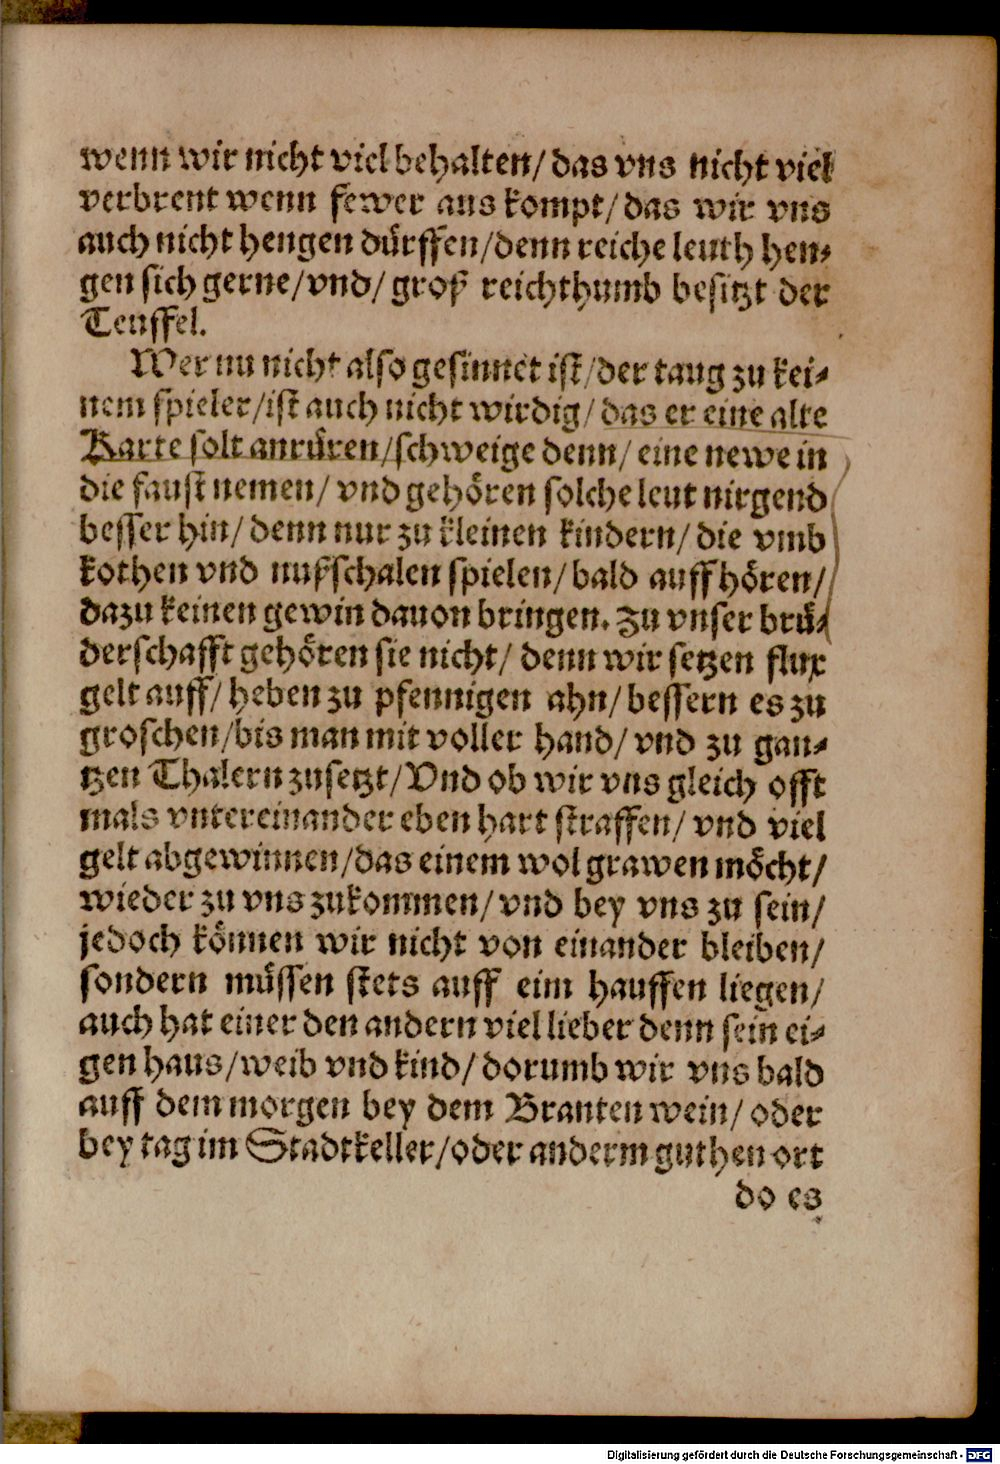 wenn wir nicht viel behalten/ das vns nicht viel
verbrent wenn fewer aus kompt/ das wir vns
auch nicht hengen dürffen/denn reiche leuth hen⸗
gen sich gerne/vnd/ groß reichthumb besitzt der
Teuffel.
Wer nu nicht also gesinnet ist/der taug zu kei⸗
nem spieler/ist auch nicht wirdig/ das er eine alte
Karte solt anrüren/schweige denn/ eine newe in
die faust nemen/ vnd gehören solche leut nirgend
besser hin/ denn nur zu kleinen kindern/ die vmb
kothen vnd nußschalen spielen/ bald auffhören/
dazu keinen gewin dauon bringen. Zu vnser brü⸗
derschafft gehören sie nicht/ denn wir setzen flux
gelt auff/ heben zu pfennigen ahn/ bessern es zu
groschen/bis man mit voller hand/ vnd zu gan⸗
tzen Thalern zusetzt/ Vnd ob wir vns gleich offt
mals vntereinander eben hart straffen/ vnd viel
gelt abgewinnen/das einem wol grawen möcht/
wieder zu vns zukommen/ vnd bey vns zu sein/
jedoch können wir nicht von einander bleiben/
sondern müssen stets auff eim hauffen liegen/
auch hat einer den andern viel lieber denn sein ei⸗
gen haus/weib vnd kind/ dorumb wir vns bald
auff dem morgen bey dem Branten wein/ oder
bey tag im Stadtkeller/oder anderm guthen ort
do es
Digitalisierung gefördert durch die Deutsche Forschungsgemeinschaft - DFG